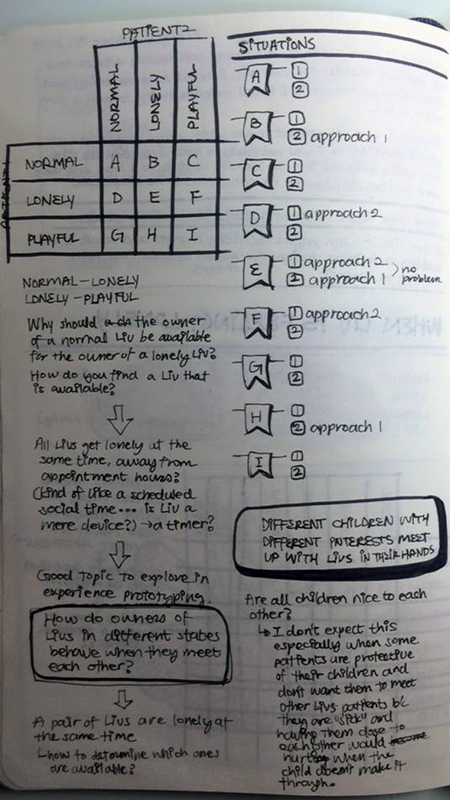 PATIENT 2
NORMAL
LONELY
PLAYFUL
NORMAL A B C
LONELY D E F
PLAYFUL G H I
NORMAL-LONELY
LONELY-PLAYFUL
Why should the owner
of a normal Liv be available
for the owner of a lonely Liv?
How do you find a Liv that
is available?
All Livs get lonely at the
same time, away from
appointment hours?
(kind of like a scheduled
social time... is Liv a
mere device?) → a timer?
Good topic to explore in
experience prototyping.
How do owners of
Livs in different states
behave when they meet
each other?
A pair of Livs are lonely at
the same time
how to determine which ones
are available?
SITUATIONS
A 1
2
B 1
2 approach 1
C 1
2
D 1 approach 2
2
E 1 approach 2
2 approach 1 > no problem
F 1 approach 2
2
G 1
2
H 1
2 approach 1
I 1
2
DIFFERENT CHILDREN WITH
DIFFERENT INTERESTS MEET
UP WITH LIVS IN THEIR HANDS
Are all children nice to each
other?
↳ I don't expect this
especially when some
patients are protective
of their children and
don't want them to meet
other Livs patients bc
they are "sick" and
having them close to
each other would
hurting when the
child doesn't make it
through.